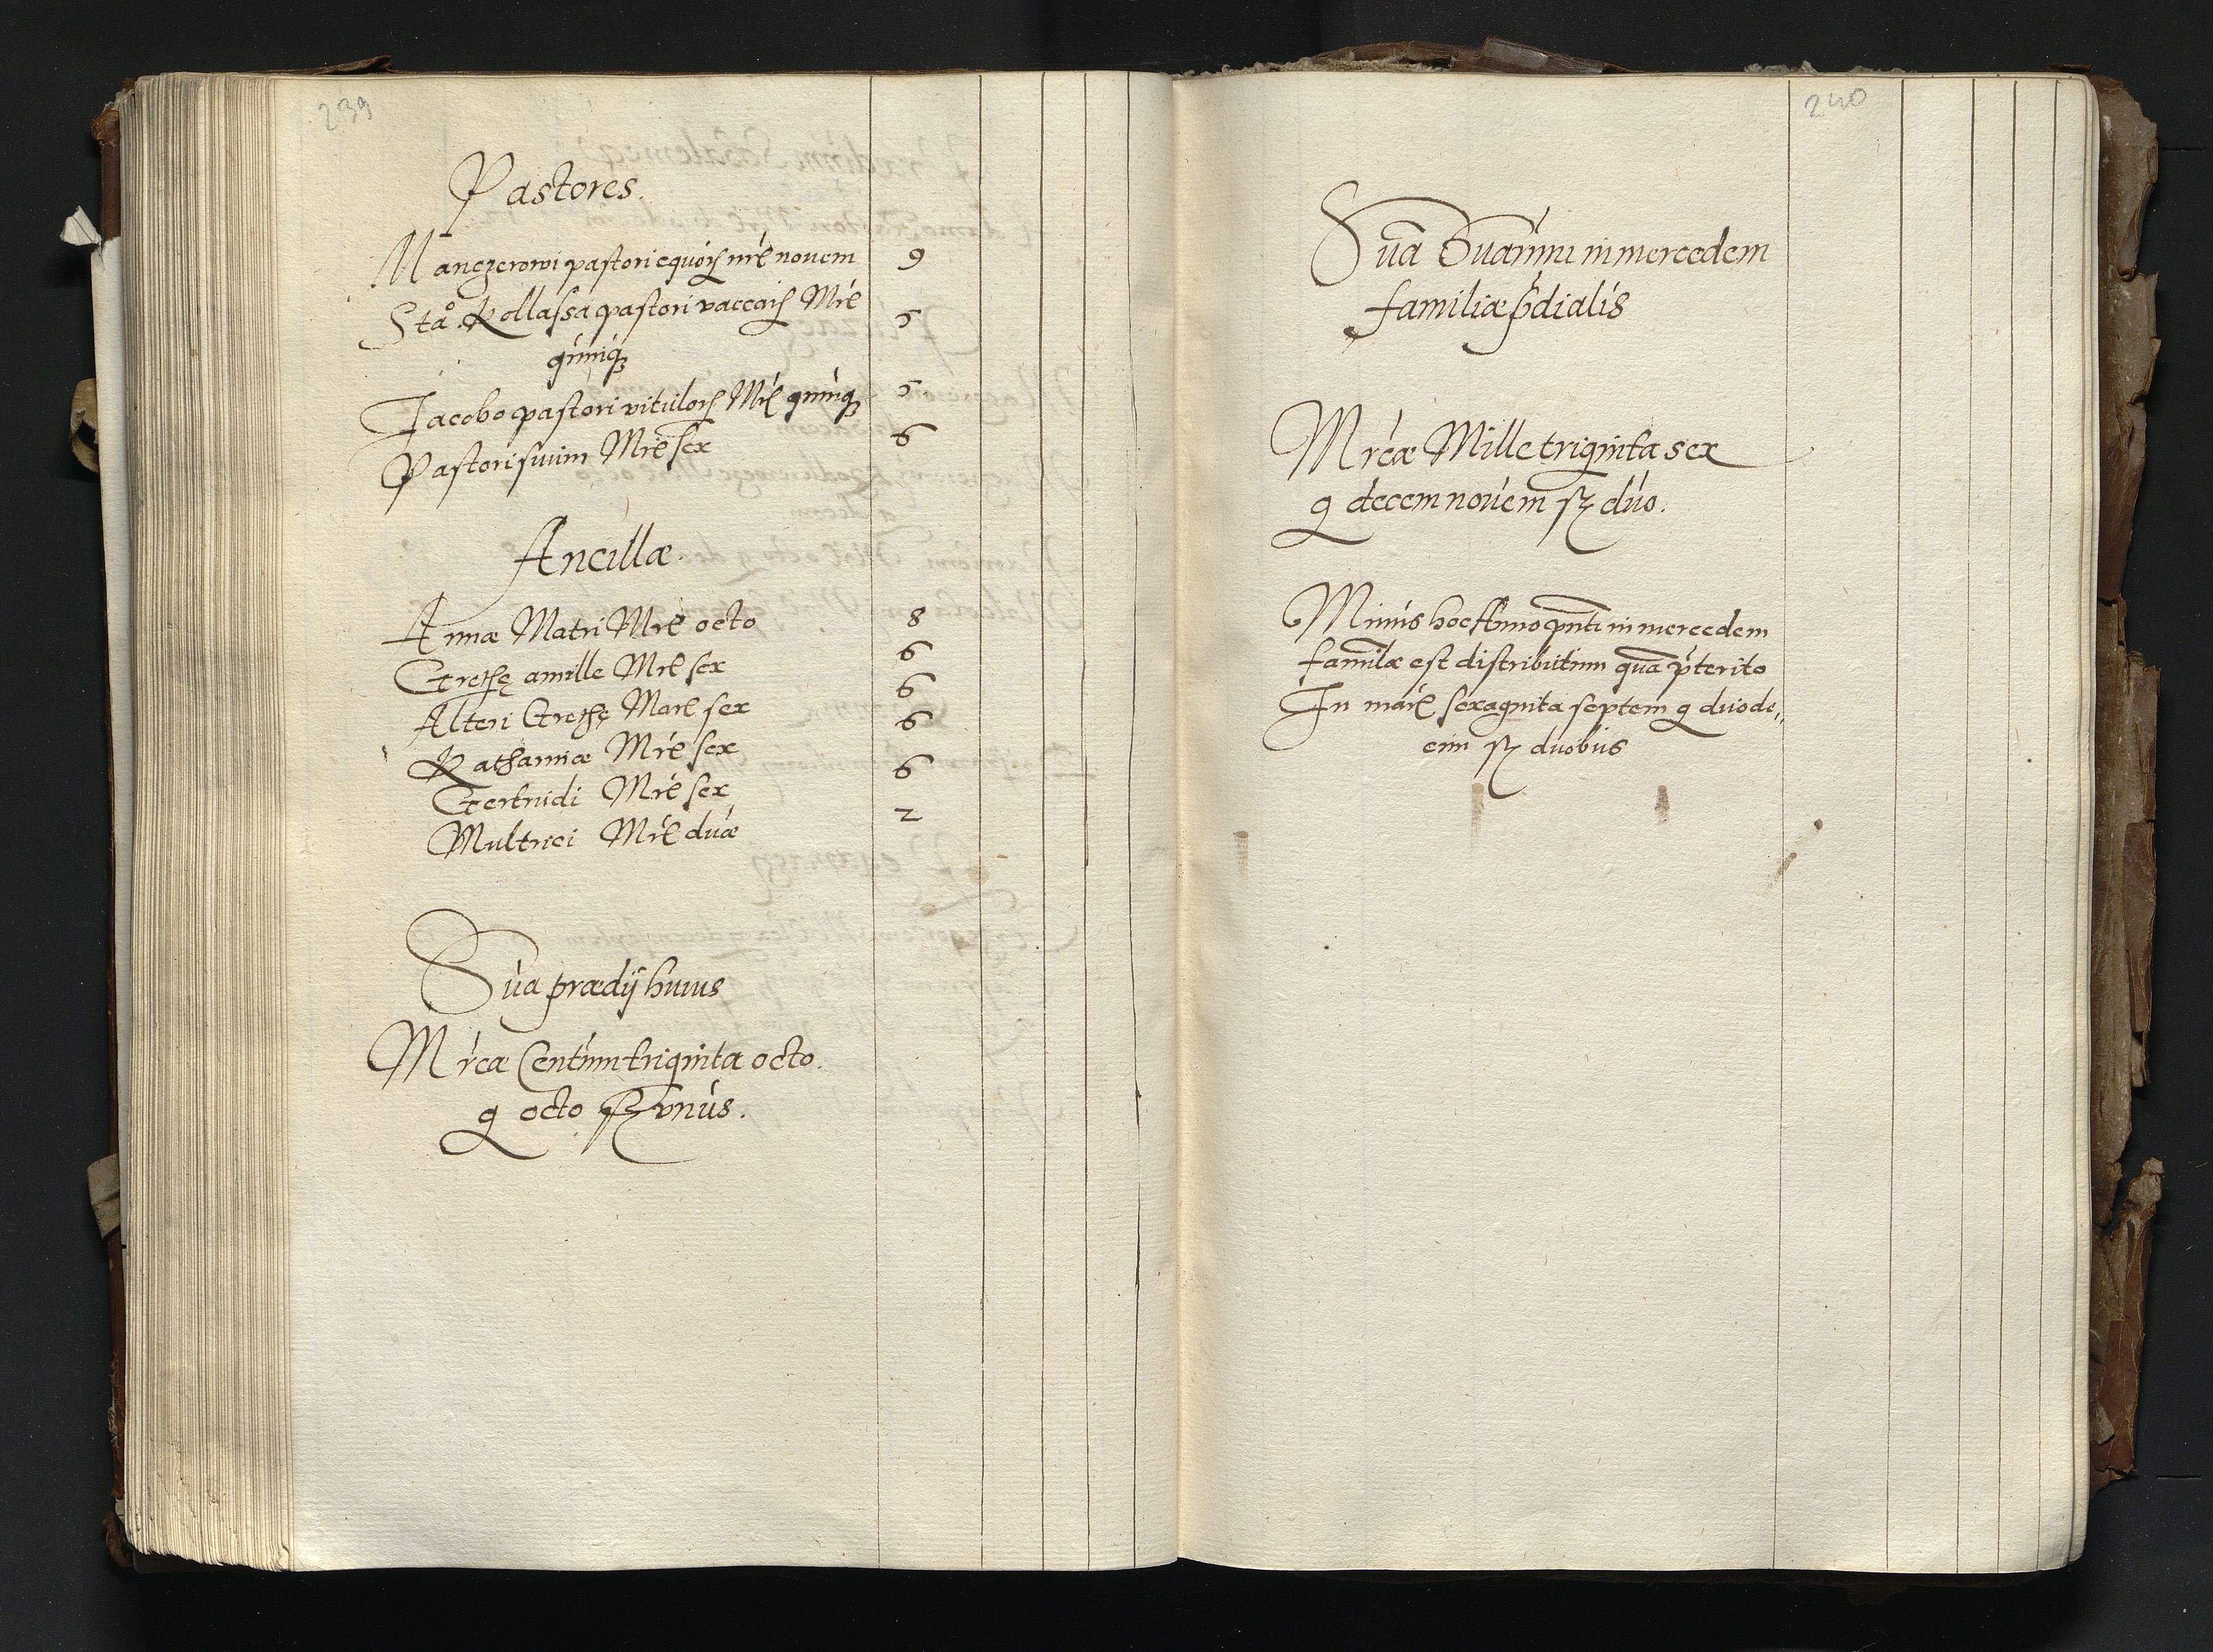 239
Pastores.
Manczerowi pastori equorꝝ mrē novem 9
Staō Kollassa pastori vaccarꝝ Mrē 5
quinqꝫ
Jacobo pastori vitulorꝝ Mrē quinqꝫ 5
Pastori suum Mrē sex 6
Ancillæ.
Annæ Matri Mrē octo 8
Grethę ancille Mrē sex 6
Alteri Grethę Marē sex 6
Katharinæ Mrē sex 6
Gertrudi Mrē sex 6
Multrici Mrē duæ 2
Sūa prædij huius
Mrcæ Centum triginta octo.
g octo ß unus.
240
Suā Suarum in mercedem
familiæ p̄dialis
Mrcæ Mille triginta sex
g decem novem ß duo.
Minus hoc Anno pn̄ti in mercedem
famīlæ est distributum quā p̄terito
In marē sexaginta septem g duode„
cim ß duobus